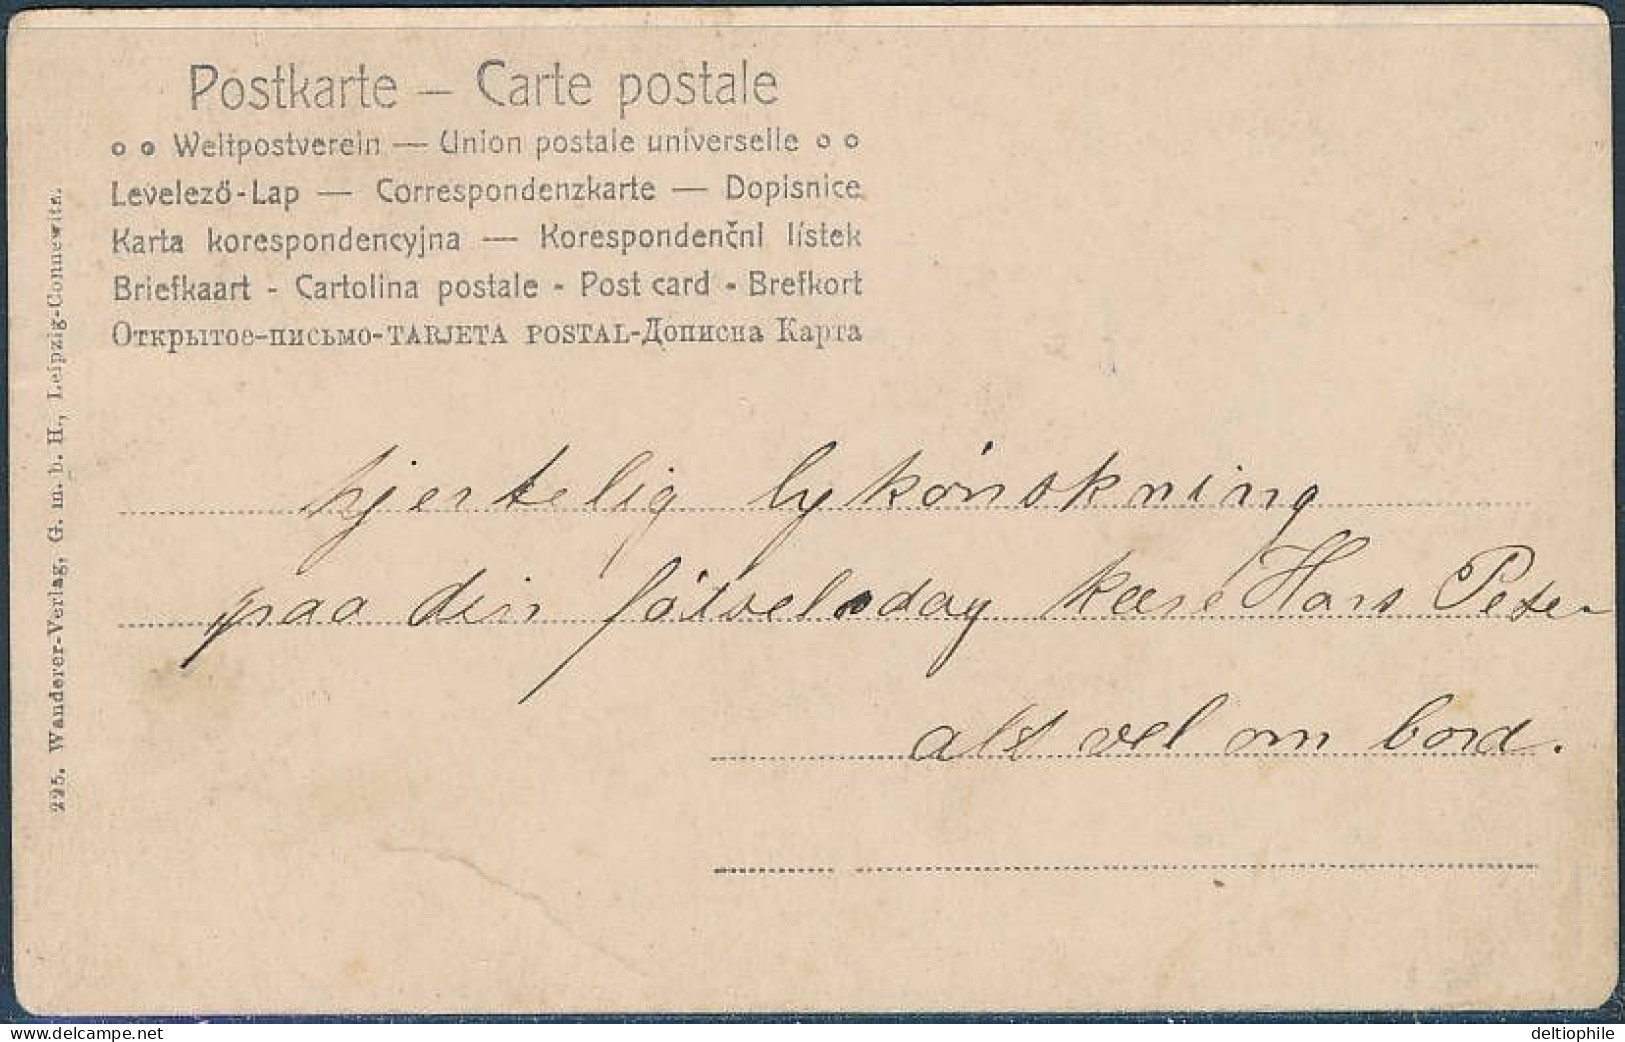 Postkarte — Carte postale
Weltpostverein — Union postale universelle
Levelező-Lap — Correspondenzkarte — Dopisnice
Karta korespondencyjna — Korespondenčnl lístek
Briefkaart - Cartolina postale - Post card - Brefkort
Открытое-письмо-TARJETA POSTAL-Дописна Карта
225. Wanderer-Verlag, G. m. b. H., Leipzig-Connewitz.
hjertelig lykönskning
paa din fötselsdag kære Hans Peter
alt vel om bord.
deltiophile